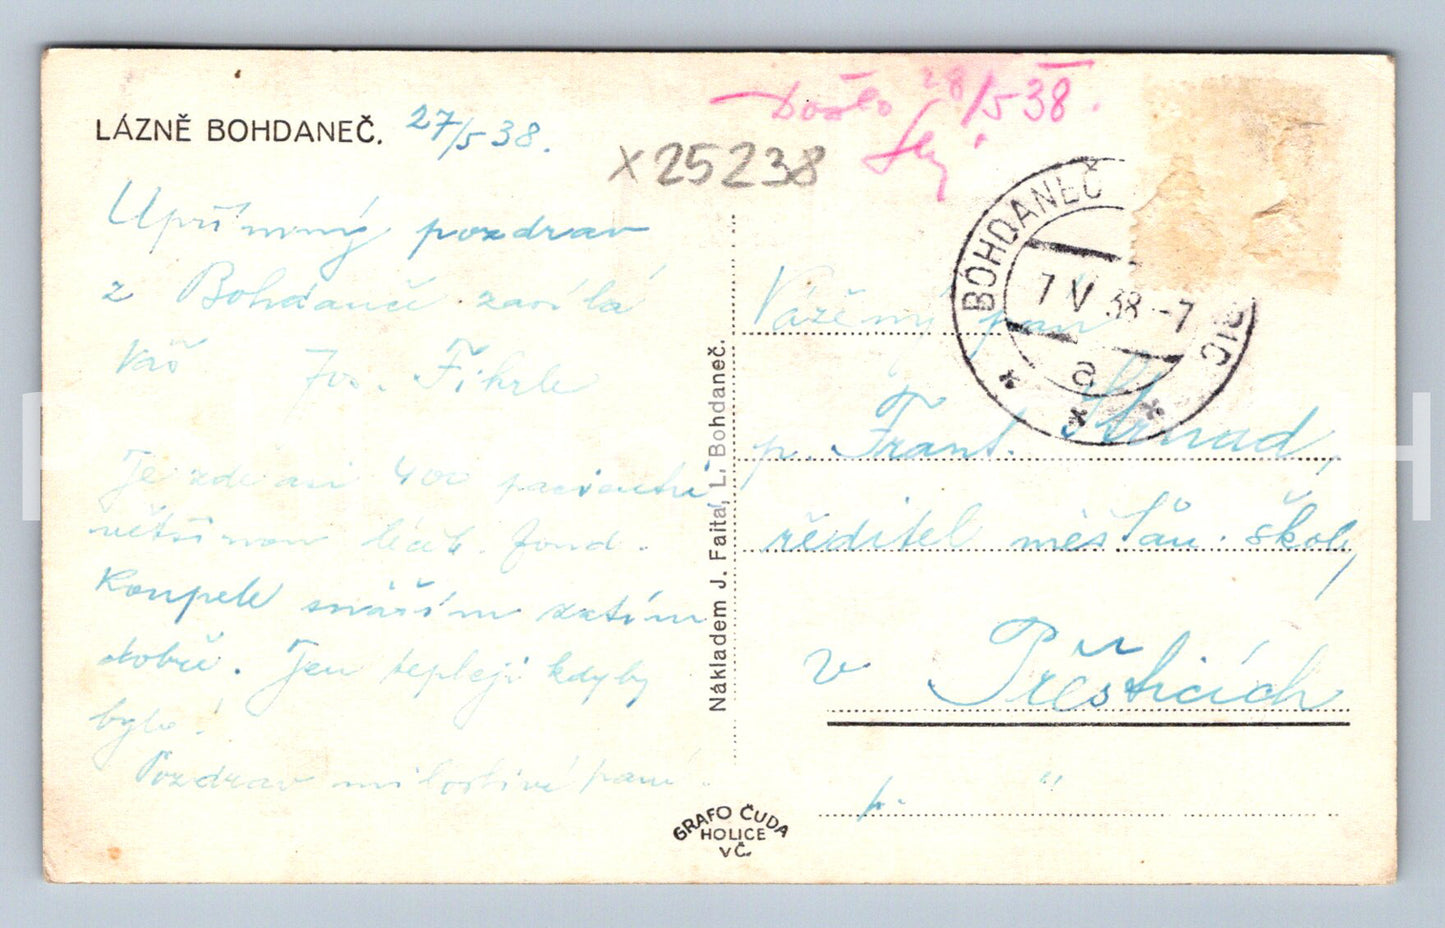 LÁZNĚ BOHDANEČ. 27/5 38.
Došlo 28/5 38.
x25238
Upřímný pozdrav
z Bohdanče zasílá
Váš Jos. Fikrle
Je zde asi 400 pacientů
většinou léčeb. fond.
Koupele snáším zatím
dobře. Jen tepleji kdyby
bylo!
Pozdrav milostivé paní.
Nákladem J. Faltal, L. Bohdaneč.
GRAFO ČUDA
HOLICE
V Č.
BOHDANEČ
7 V 38 -7
a
Vážený pan
p. Frant. Strnad,
ředitel měšťan. školy
v Přešticích
p. "